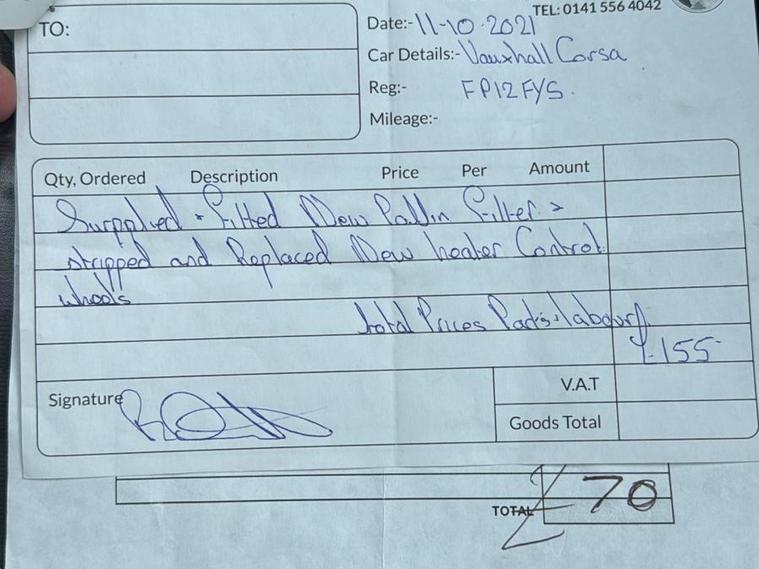 TEL: 0141 556 4042
TO:
Date:- 11-10-2021
Car Details:- Vauxhall Corsa
Reg:- FP12FYS.
Mileage:-
Qty, Ordered Description Price Per Amount
Fitted New Pollin Filter
stripped and Replaced New heater Control
wheels
total Prices Parts + labour
£155
Signature
V.A.T
Goods Total
TOTAL £70